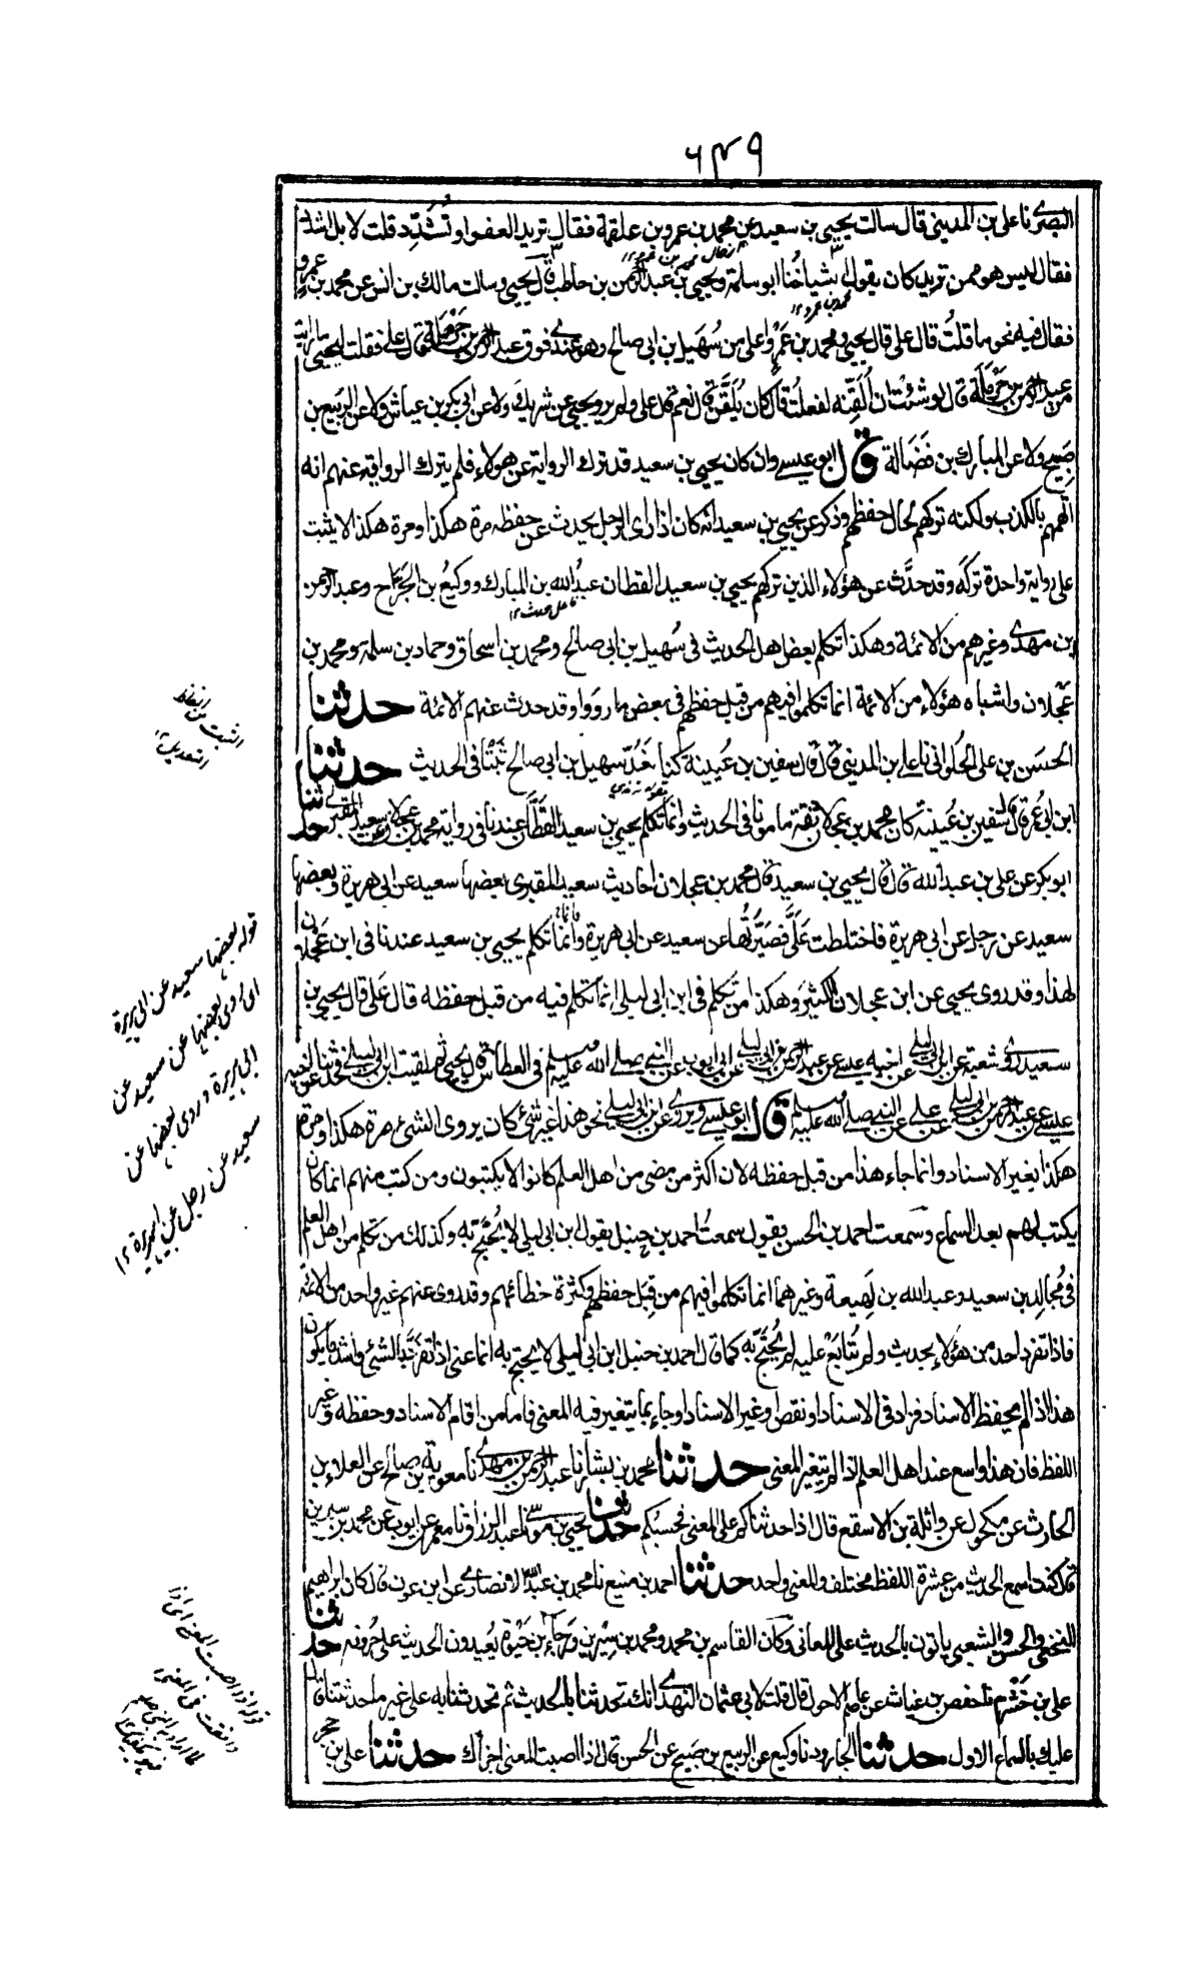 ٦٤٩
البصري نا علي بن المديني قال سالت يحيى بن سعيد عن محمد بن عمرو بن علقمة فقال تريد العفو او تُشَدِّد قلت لا بل اشدد
فقال ليس هو ممن تريد كان يقول اشياخُنا ابو سلمة ويحيى بن عبد الرحمن بن حاطب قال يحيى وسالت مالك بن انس عن محمد بن عمرو
فقال فيه نحو ما قلتُ قال علي قال يحيى ومحمد بن عَمْرو اعلى من سُهَيل بن ابي صالح وهو عندي فوق عبد الرحمن بن حَرْمَلَة قال علي فقلت ليحيى ما رايت
من عبد الرحمن بن حَرْمَلَة قال لو شئتُ ان اُلَقِّنَه لفعلتُ قال كان يُلَقَّن قال نعم قال علي ولم يرو يحيى عن شريك ولا عن ابي بكر بن عياش ولا عن الربيع بن
صَبِيح ولا عن المبارك بن فَضَالة قال ابو عيسى وان كان يحيى بن سعيد قد ترك الرواية عن هولاء فلم يترك الرواية عنهم انه
اتهمهم بالكذب ولكنه تركهم لحال حفظهم وذكر عن يحيى بن سعيد انه كان اذا راى الرجل يحدث عن حفظه مرة هكذا ومرة هكذا لا يثبت
على رواية واحدة تركَه وقد حدَّث عن هؤلاء الذين تركهم يحيى بن سعيد القطان عبدُ الله بن المبارك ووكيعُ بن الجَرّاح وعبد الرحمن
بن مهدي وغيرهم من الائمة وهكذا تكلم بعض اهل الحديث في سُهيل بن ابي صالح ومحمد بن اسحاق وحماد بن سلمة ومحمد بن
عَجْلان واشباه هؤلاء من الائمة انما تكلموا فيهم من قبل حفظهم في بعض ما رَوَوا وقد حدث عنهم الائمة حدثنا
الحسَن بن علي الحُلواني نا علي بن المديني قال قال سفين بن عُيينة كنا نَعُدّ سهيل بن ابي صالح ثَبْتًا في الحديث حدثنا
ابن ابي عُمر قال قال سفين بن عُيينة كان محمد بن عجلان ثقة مامونا في الحديث وانما تكلم يحيى بن سعيد القَطَّان عندنا في رواية محمد بن عجلان عن سعيد المقبري حدثنا
ابو بكر عن علي بن عبد الله قال قال يحيى بن سعيد قال محمد بن عجلان احاديث سعيد المقبري بعضها سعيد عن ابي هريرة وبعضها
سعيد عن رجل عن ابي هريرة فاختلطت عَلَيَّ فصَيَّرتُها عن سعيد عن ابي هريرة وانما تكلم يحيى بن سعيد عندنا في ابن عَجْلان
لهذا وقد روى يحيى عن ابن عجلان الكثيرَ وهكذا من تكلم في ابن ابي ليلى انما تكلم فيه من قبل حفظه قال عَلي قال يحيى بن
سعيد روى شعبة عن ابن ابي ليلى عن اخيه عيسى عن عبد الرحمن بن ابي ليلى عن ابي ايوب عن النبي صلى الله عليه وسلم في العطاس قال يحيى ثم لقيت ابن ابي ليلى فحدثنا عن اخيه
عيسى عن عبد الرحمن بن ابي ليلى عن علي عن النبي صلى الله عليه وسلم قال ابو عيسى ويروى عن ابن ابي ليلى نحو هذا غير شئ كان يروى الشئ مرة هكذا ومرة
هكذا يغير الاسناد وانما جاء هذا من قبل حفظه لان اكثر من مضى من اهل العلم كانوا لا يكتبون ومن كتب منهم انما كان
يكتب لهم بعد السماع وسمعت احمد بن الحسن يقول سمعتُ احمد بن حنبل يقول ابن ابي ليلى لا يُحْتَجّ به وكذلك من تكلم من اهل العلم
في مُجالِد بن سعيد وعبد الله بن لَهِيعة وغيرهما انما تكلموا فيهم من قِبَل حفظهم وكثرة خطائهم وقد روى عنهم غير واحد من الائمة
فاذا تفرد احد من هؤلاء بحديث ولم يُتابَعْ عليه لم يُحْتَجّ به كما قال احمد بن حنبل ابن ابي ليلى لا يحتج به انما عنى اذا تفرَّد بالشئ واشد ما يكون
هذا اذا لم يحفظ الاسناد فزاد في الاسناد او نقص او غير الاسناد او جاء بما يتغير فيه المعنى فاما من اقام الاسناد وحفظه وغير
اللفظ فان هذا واسع عند اهل العلم اذا لم يتغير المعنى حدثنا محمد بن بشار نا عبد الرحمن بن مهدي نا معوية بن صالح عن العلاء بن
الحارث عن مكحول عن واثلة بن الاسقع قال اذا حدثناكم على المعنى فحسبكم حدثنا يحيى بن موسى نا عبد الرزاق نا معمر عن ايوب عن محمد بن سيرين
قال كنت اسمع الحديث من عشرة اللفظ مختلف والمعنى واحد حدثنا احمد بن منيع نا محمد بن عبد الله الانصاري عن ابن عون قال كان ابراهيم
النخعي والحسن والشعبي ياتون بالحديث على المعاني وكان القاسم بن محمد ومحمد بن سيرين ورجاء بن حَيْوَة يُعيدون الحديث على حروفه حدثنا
علي بن خَشْرم نا حفص بن غياث عن عاصم الاحول قال قلت لابي عثمان النهدي انك تحدثنا بالحديث ثم تحدثنا به على غير ما حدثتنا قال
عليك بالسماع الاول حدثنا الجارود نا وكيع عن الربيع بن صَبيح عن الحسن قال اذا اصبت المعنى اجزأك حدثنا علي بن حجر
الثبت من الفاظ
التعديل ١٢
قوله بعضها سعيد عن ابي هريرة
اي روى بعضها عن سعيد عن
ابي هريرة وروى بعضها عن
سعيد عن رجل عن ابي هريرة ١٢
قوله اذا اصبت المعنى اي اذا